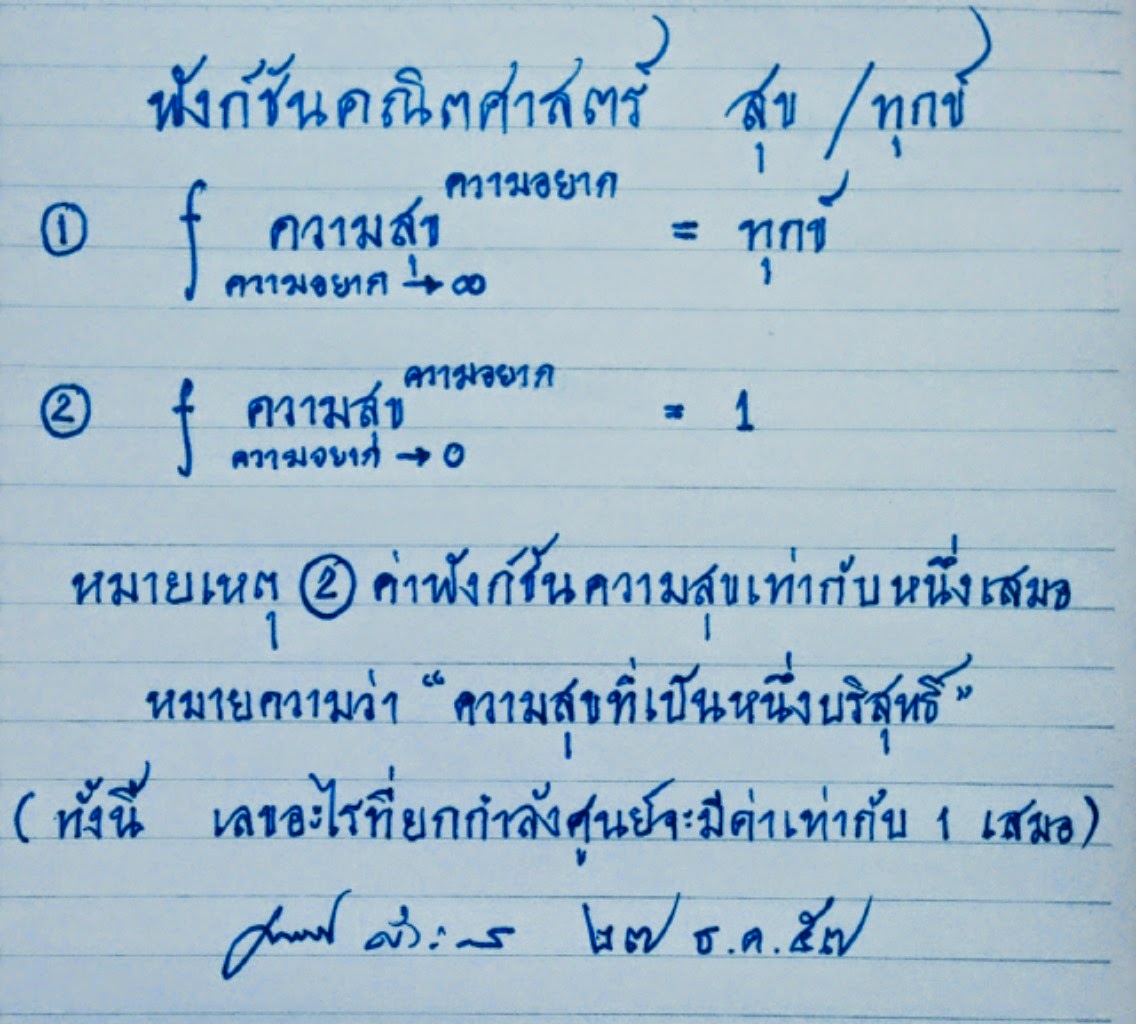 ฟังก์ชันคณิตศาสตร์ สุข / ทุกข์
① f ความสุข^ความอยาก = ทุกข์
ความอยาก → ∞
② f ความสุข^ความอยาก = 1
ความอยาก → 0
หมายเหตุ ② ค่าฟังก์ชันความสุขเท่ากับหนึ่งเสมอ
หมายความว่า “ความสุขที่เป็นหนึ่งบริสุทธิ์”
(ทั้งนี้ เลขอะไรที่ยกกำลังศูนย์จะมีค่าเท่ากับ 1 เสมอ)
๒๗ ธ.ค. ๕๗